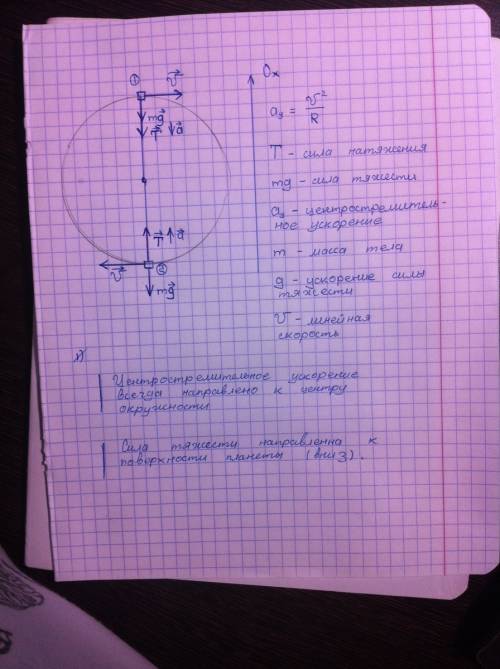 ①
v
Ox
mg
T a
T a
②
v
mg
aц = v²/R
T – сила натяжения
mg – сила тяжести
aц – центростремитель-
ное ускорение
m – масса тела
g – ускорение силы
тяжести
V – линейная
скорость
1)
Центростремительное ускорение
всегда направлено к центру
окружности
Сила тяжести направленна к
поверхности планеты (вниз).